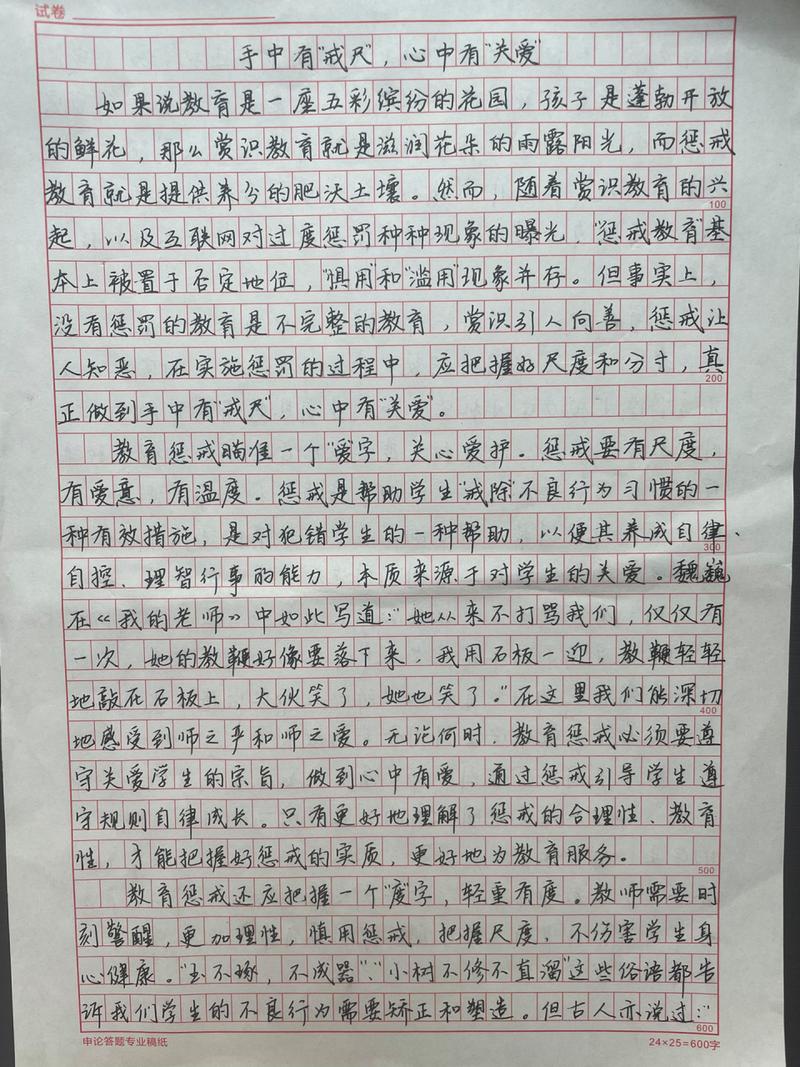 试卷
手中有“戒尺”，心中有“关爱”
如果说教育是一座五彩缤纷的花园，孩子是蓬勃开放
的鲜花，那么赏识教育就是滋润花朵的雨露阳光，而惩戒
教育就是提供养分的肥沃土壤。然而，随着赏识教育的兴
100
起，以及互联网对过度惩罚种种现象的曝光，“惩戒教育”基
本上被置于否定地位，“惧用”和“滥用”现象并存。但事实上，
没有惩罚的教育是不完整的教育，赏识引人向善，惩戒让
人知恶，在实施惩罚的过程中，应把握好尺度和分寸，真
200
正做到手中有“戒尺”，心中有“关爱”。
教育惩戒瞄准一个“爱”字，关心爱护。惩戒要有尺度，
有爱意，有温度。惩戒是帮助学生“戒除”不良行为习惯的一
种有效措施，是对犯错学生的一种帮助，以便其养成自律、
300
自控、理智行事的能力，本质来源于对学生的关爱。魏巍
在《我的老师》中如此写道：“她从来不打骂我们，仅仅有
一次，她的教鞭好像要落下来，我用石板一迎，教鞭轻轻
地敲在石板上，大伙笑了，她也笑了。”在这里我们能深切
400
地感受到师之严和师之爱。无论何时，教育惩戒必须要遵
守关爱学生的宗旨，做到心中有爱，通过惩戒引导学生遵
守规则自律成长。只有更好地理解了惩戒的合理性、教育
性，才能把握好惩戒的实质，更好地为教育服务。
500
教育惩戒还应把握一个“度”字，轻重有度。教师需要时
刻警醒，更加理性，慎用惩戒，把握尺度，不伤害学生身
心健康。“玉不琢，不成器”、“小树不修不直溜”这些俗语都告
诉我们学生的不良行为需要矫正和塑造。但古人亦说过：“
600
申论答题专业稿纸
24×25=600字